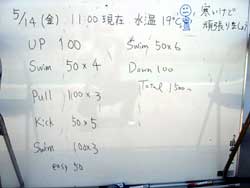 5/14 (金) 11:00 現在 水温 19℃ 寒いけど
頑張りましょう
UP 100
Swim 50×4
Pull 100×3
Kick 50×5
Swim 100×3
easy 50
Swim 50×6
Down 100
Total 1500